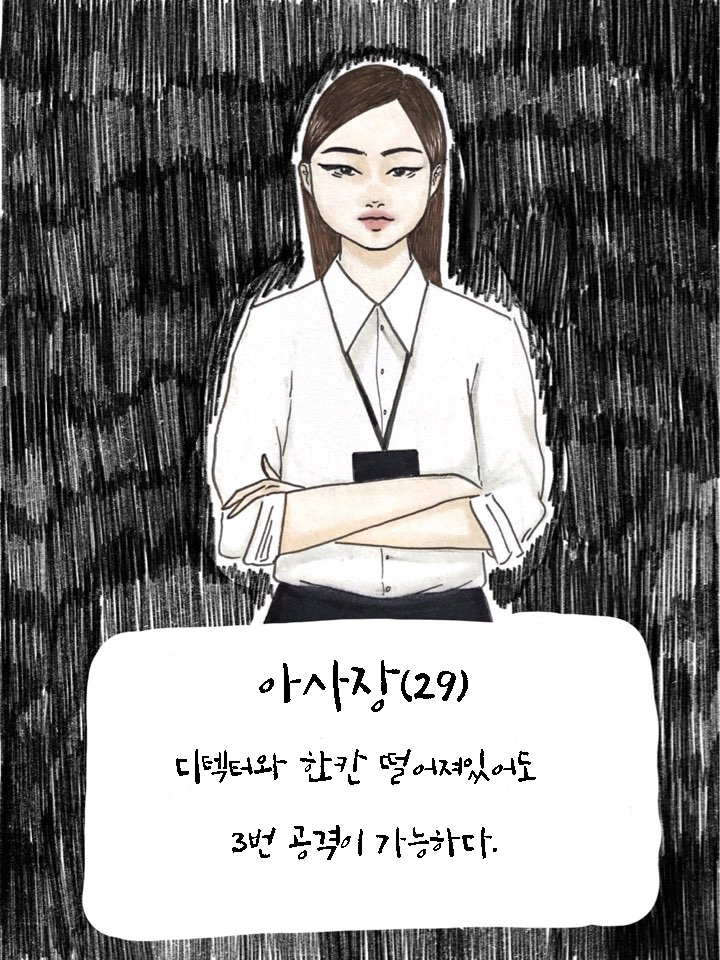 아사장(29)
디텍터와 한칸 떨어져있어도
3번 공격이 가능하다.